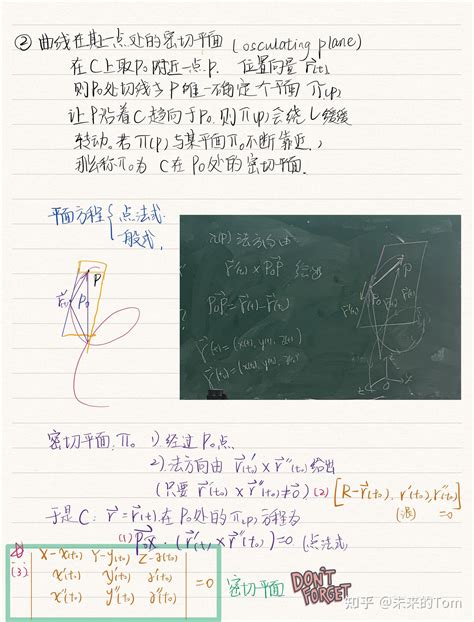 ② 曲线在某一点处的密切平面 (osculating plane)
在C上取P₀附近一点P. 位置向量 r⃗(t),
则P₀处切线与P唯一确定一个平面 π(p)
让P沿着C趋向于P₀. 则π(p)会绕 L 缓缓
转动. 若π(P)与某平面π₀不断靠近,
那么称π₀为 C在P₀处的密切平面.
平面方程 { 点法式
一般式.
π(P) 法方向由
r⃗'(t₀) × P₀P⃗ 给出
P₀P⃗ = r⃗(t) - r⃗(t₀)
r⃗(t) = (x(t), y(t), z(t))
P
P₀
r⃗(t₀)
P
P₀
密切平面π₀ 1) 经过P₀点
2) 法方向由 r⃗'(t₀) × r⃗''(t₀) 给出
(只要 r⃗'(t₀) × r⃗''(t₀) ≠ 0⃗) (2) [R - r⃗(t₀), r⃗'(t₀), r⃗''(t₀)] = 0
于是C: r⃗ = r⃗(t) 在P₀处的π(p)方程为
(1) P₀X⃗ · (r⃗'(t₀) × r⃗''(t₀)) = 0 (点法式)
(3) | X-x(t₀) Y-y(t₀) Z-z(t₀) |
| x'(t₀) y'(t₀) z'(t₀) | = 0 密切平面
| x''(t₀) y''(t₀) z''(t₀) |
DON'T
FORGET
知乎 @未来的Tom